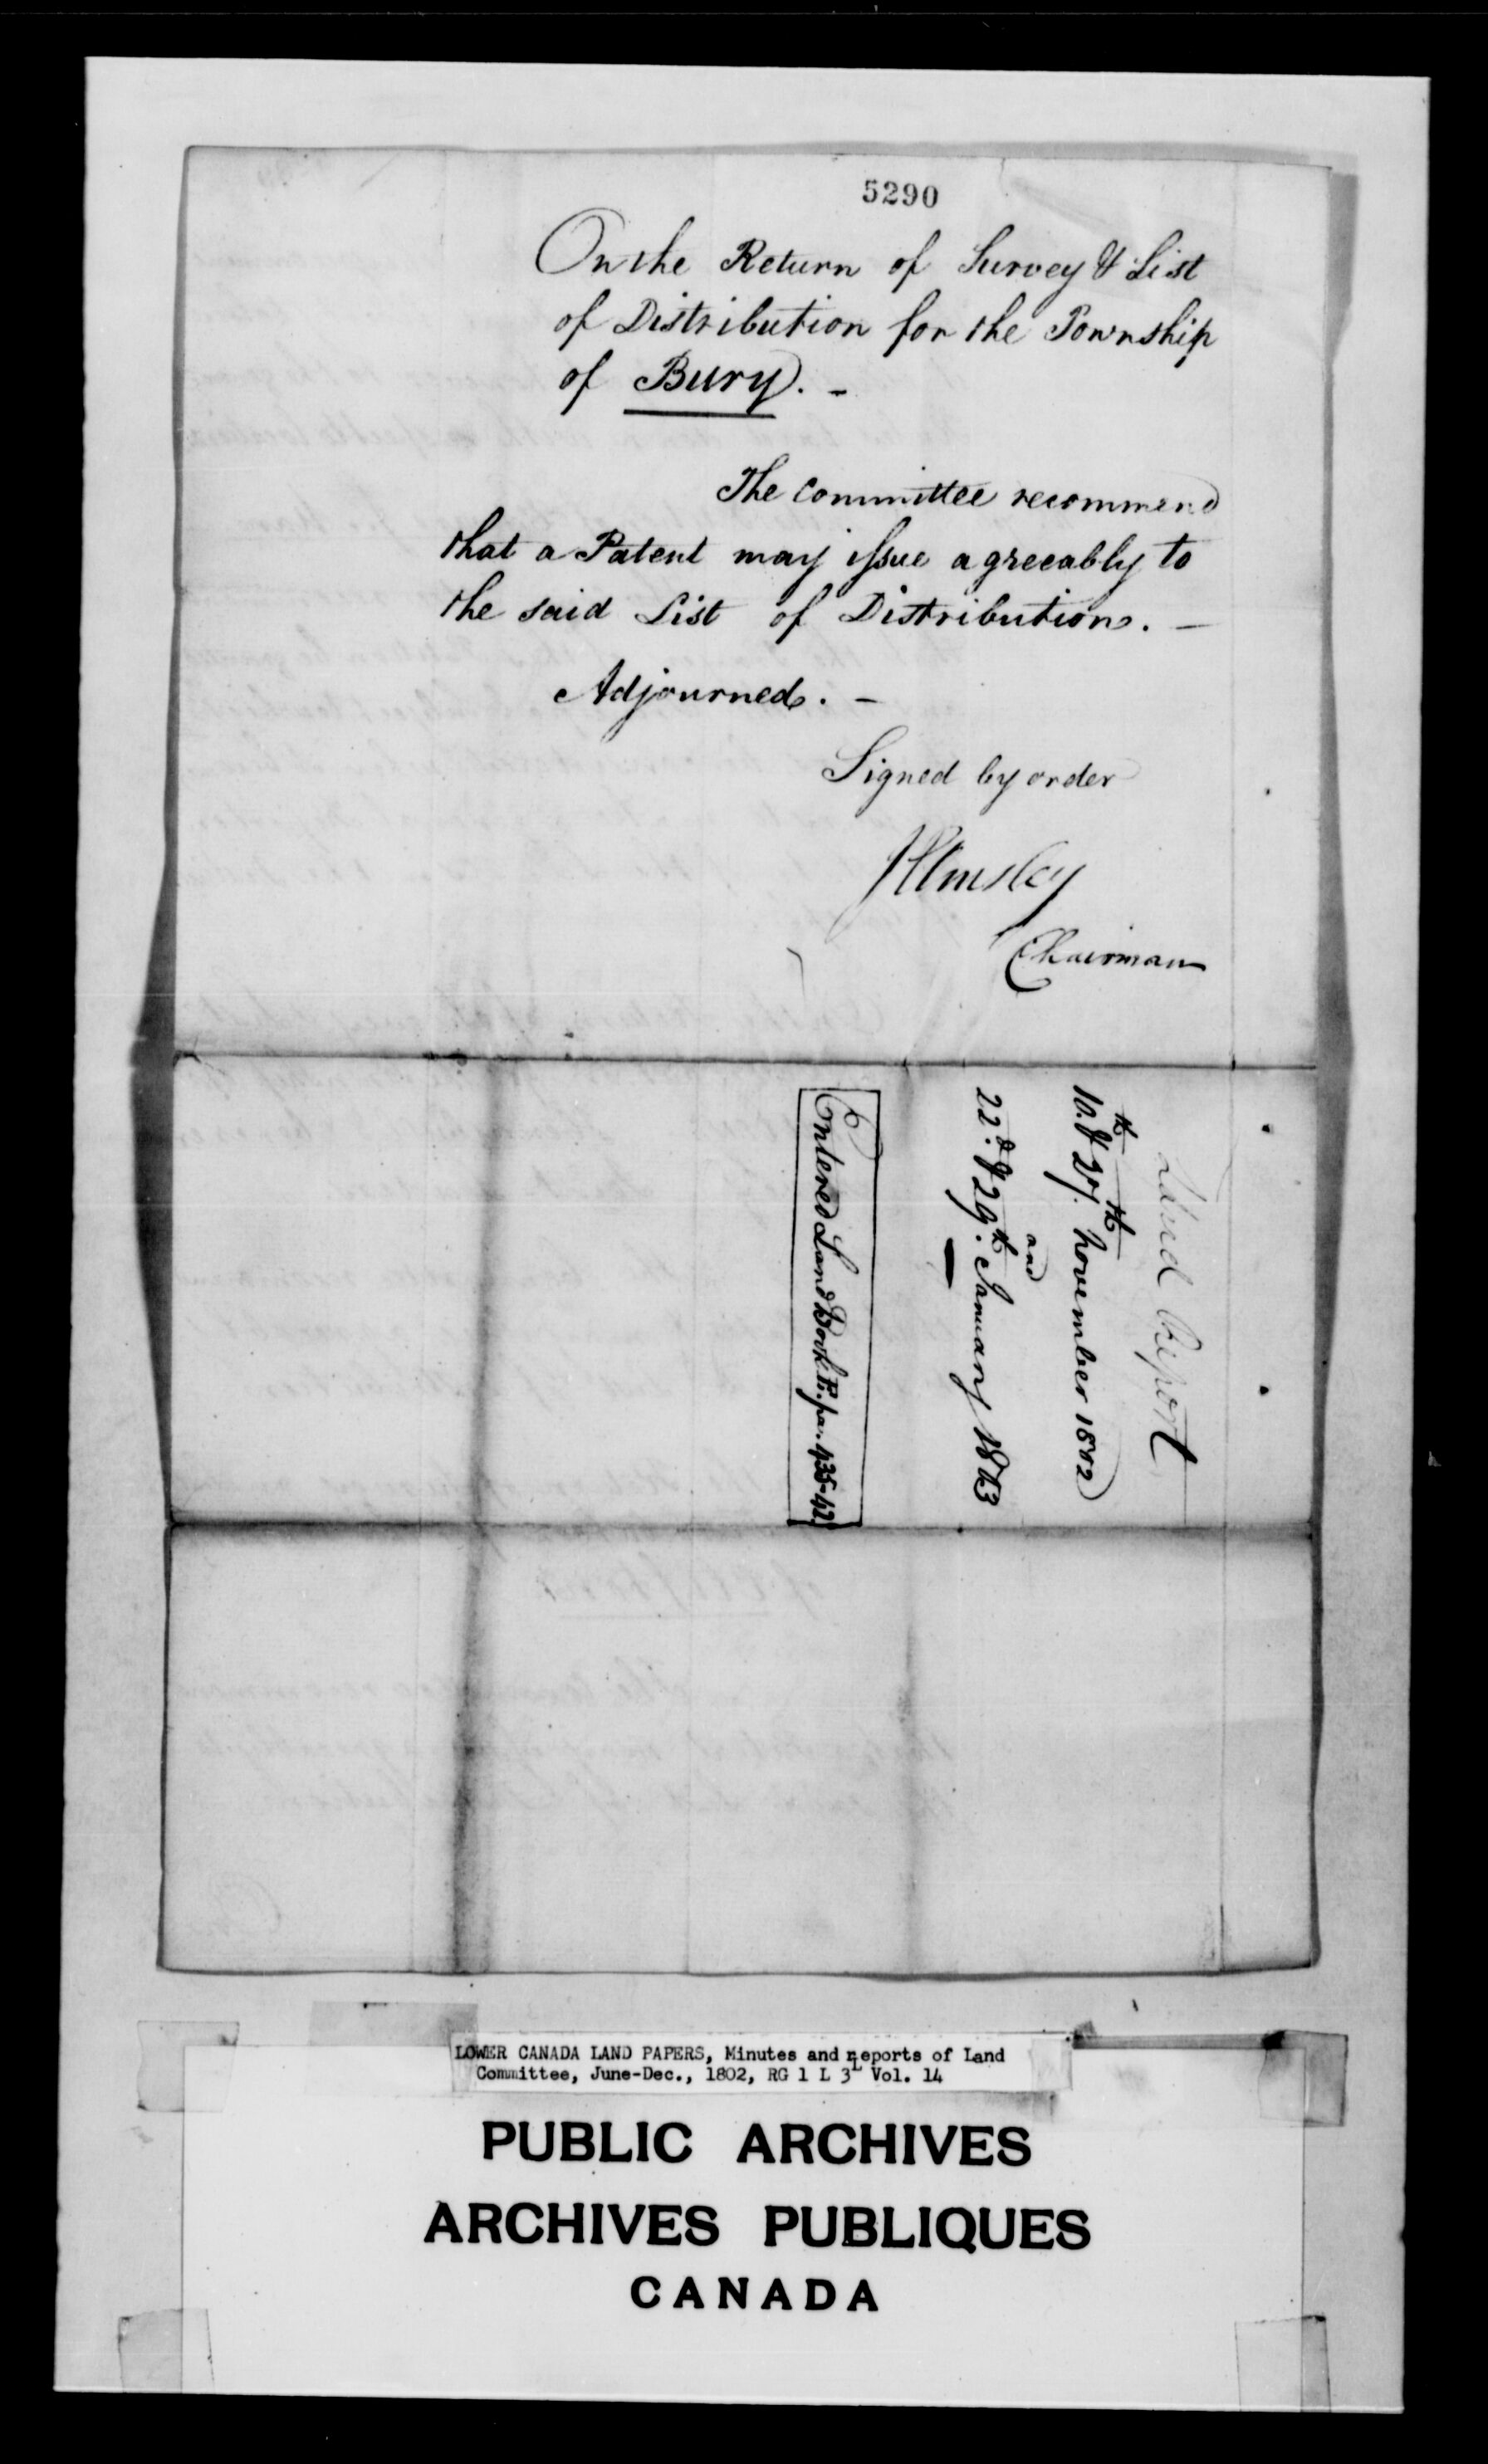 5290
On the Return of Survey & List
of Distribution for the Township
of Bury. -
The Committee recommend
that a Patent may issue agreeably to
the said List of Distribution. -
Adjourned. -
Signed by order
J Elmsley
Chairman
Land Report
10th & 27th November 1802
and
22d & 29th January 1803
Entered Land Book P. pa. 435-42
LOWER CANADA LAND PAPERS, Minutes and Reports of Land
Committee, June-Dec., 1802, RG 1 L 3L Vol. 14
PUBLIC ARCHIVES
ARCHIVES PUBLIQUES
CANADA